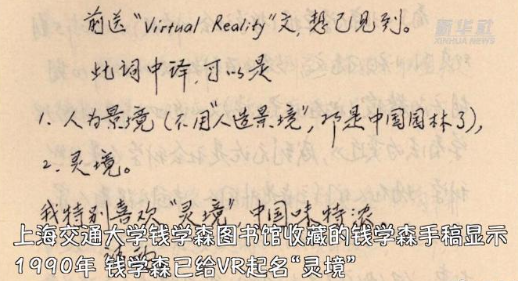 新华社
XINHUA NEWS
前送“Virtual Reality”文,想已见到。
此词中译,可以是
1. 人为景境(不用“人造景境”,那是中国园林了),
2. 灵境。
我特别喜欢“灵境”,中国味特浓。
上海交通大学钱学森图书馆收藏的钱学森手稿显示
1990年 钱学森已给VR起名“灵境”